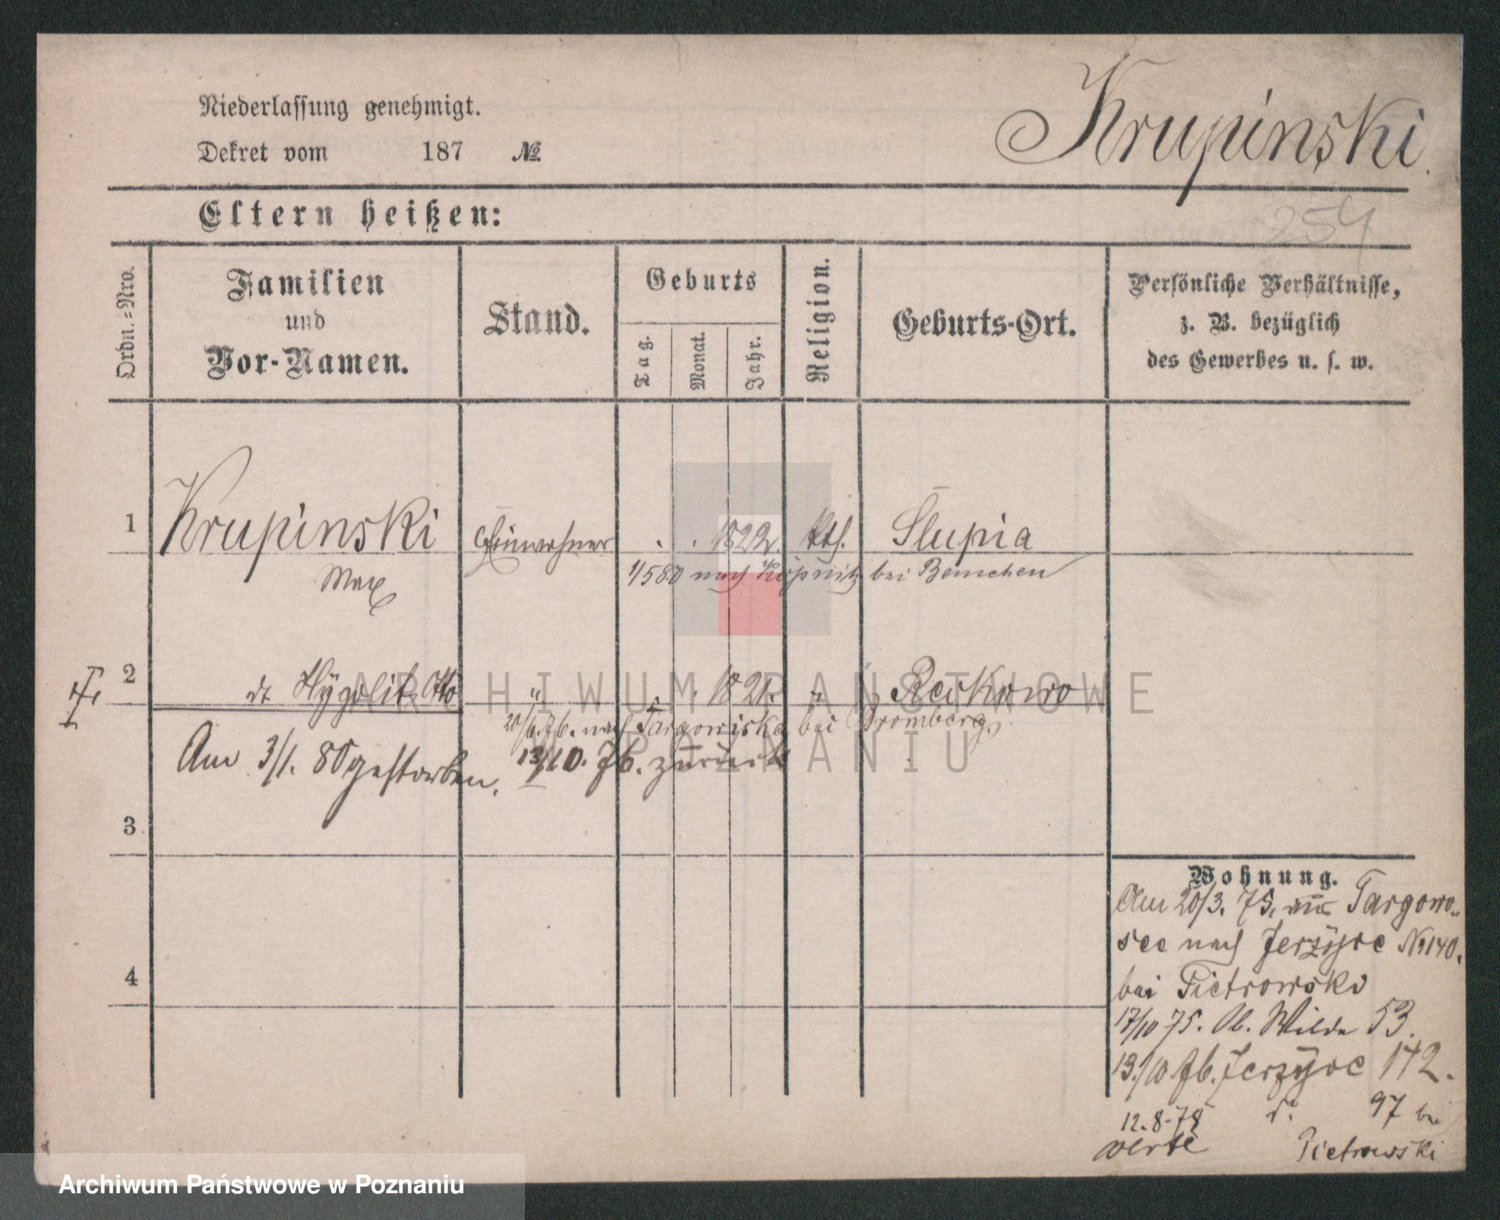 Niederlassung genehmigt.
Dekret vom 187 №
Krupinski.
254
Eltern heißen:
Ordn.-Nro.
Familien
und
Vor-Namen.
Stand.
Geburts
Tag.
Monat.
Jahr.
Religion.
Geburts-Ort.
Persönliche Verhältnisse,
z. B. bezüglich
des Gewerbes u. s. w.
1 Krupinski Einwohner . . 1822. kth. Slupia
Max 1/5 80 nach Köpnitz bei Bentschen
2 Otto " . . 1821. "
20/6. 76. nach Targowiska bei Bromberg.
Am 3/1. 80 gestorben. 13/10. 76. zurück
3
4
Wohnung.
Am 20/3. 75. aus Targowo-
see nach Jerzyce No 140.
bei Pietrowski
17/10 75. Ob. Wilda 53.
13/10 76. Jerzyce 142.
12.8.78 d. 97 bei
verte Pietrowski
ARCHIWUM PAŃSTWOWE
W POZNANIU
Archiwum Państwowe w Poznaniu